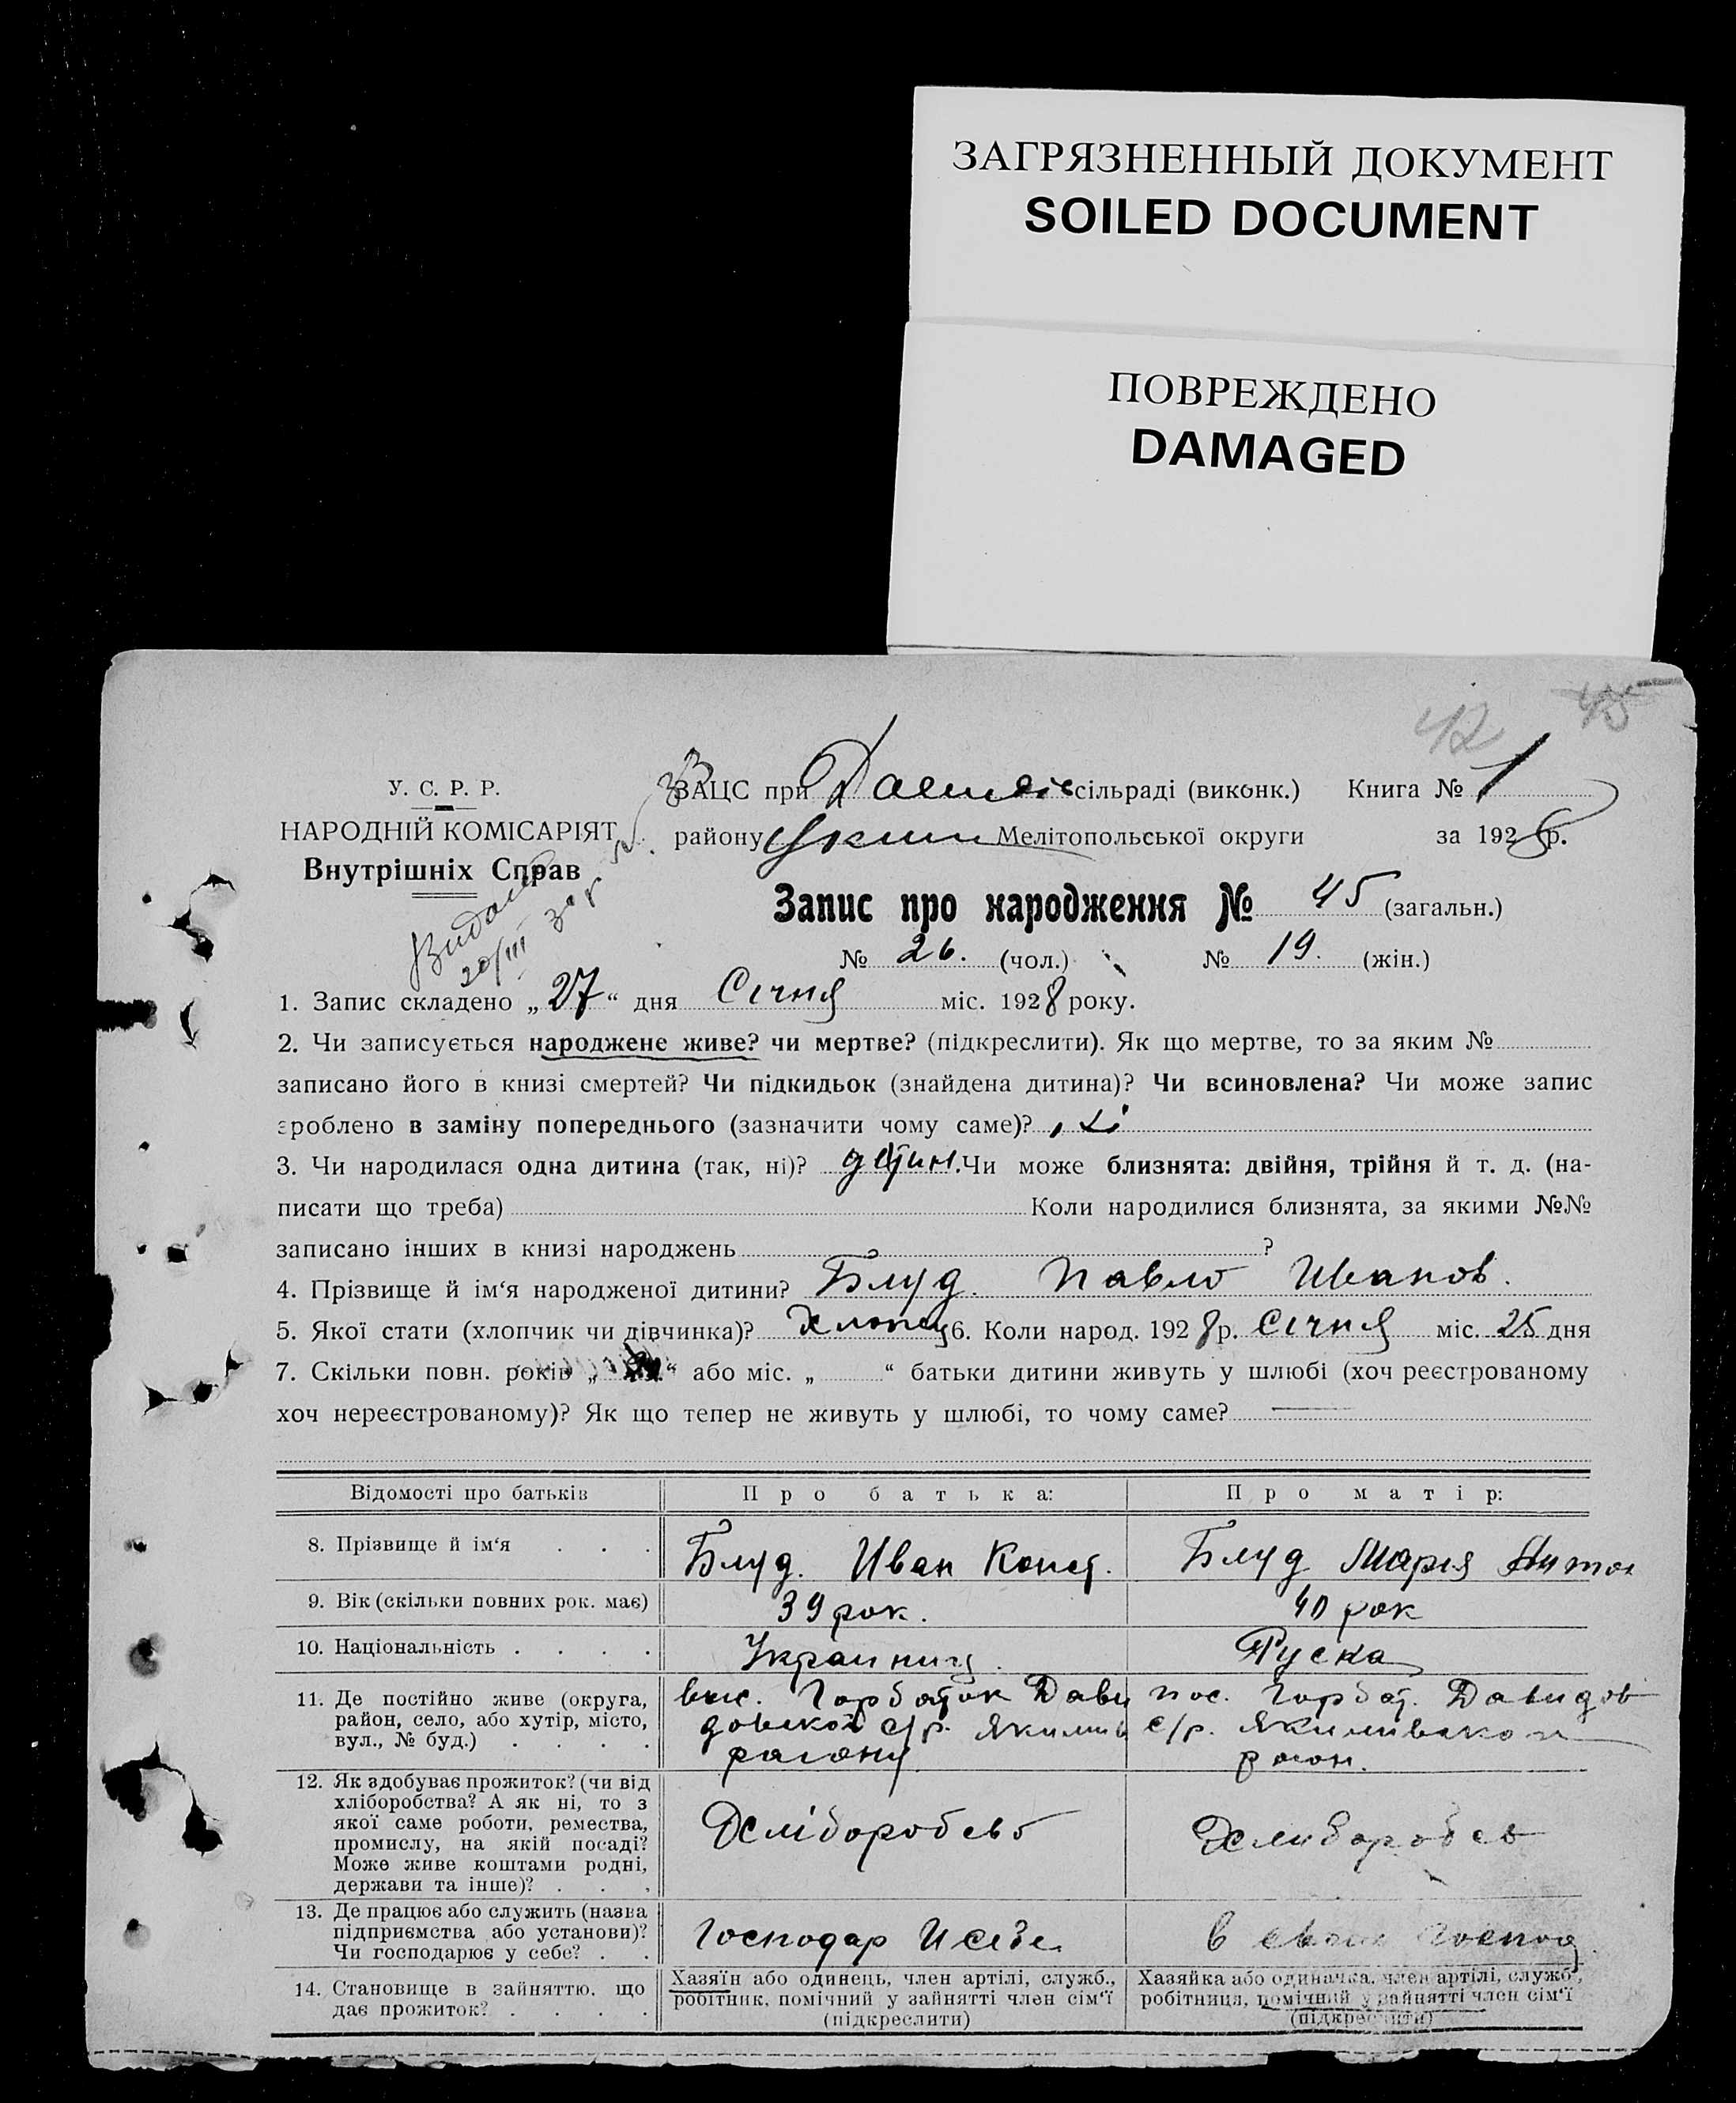 ЗАГРЯЗНЕННЫЙ ДОКУМЕНТ
SOILED DOCUMENT
ПОВРЕЖДЕНО
DAMAGED
42 45
У. С. Р. Р.
НАРОДНІЙ КОМІСАРІЯТ
Внутрішніх Справ
ЗАЦС при сільраді (виконк.) Книга № 1
району Яким Мелітопольської округи за 1928 р.
Запис про народження № 45 (загальн.)
№ 26. (чол.) № 19. (жін.)
20/III
1. Запис складено „27“ дня Січня міс. 1928 року.
2. Чи записується народжене живе? чи мертве? (підкреслити). Як що мертве, то за яким №
записано його в книзі смертей? Чи підкидьок (знайдена дитина)? Чи всиновлена? Чи може запис
зроблено в заміну попереднього (зазначити чому саме)?
3. Чи народилася одна дитина (так, ні)? Чи може близнята: двійня, трійня й т. д. (на-
писати що треба) Коли народилися близнята, за якими №№
записано інших в книзі народжень ?
4. Прізвище й ім‘я народженої дитини? Блуд. Павло Иванов.
5. Якої стати (хлопчик чи дівчинка)? Хлопец 6. Коли народ. 1928 р. Січня міс. 25 дня
7. Скільки повн. років „ “ або міс. „ “ батьки дитини живуть у шлюбі (хоч реєстрованому
хоч нереєстрованому)? Як що тепер не живуть у шлюбі, то чому саме? —
Відомості про батьків Про батька: Про матір:
8. Прізвище й ім‘я . . . Блуд. Иван Конст. Блуд Мария Антон
9. Вік (скільки повних рок. має) 39 рок. 40 рок
10. Національність . . . . Украинец. Руска
11. Де постійно живе (округа,
район, село, або хутір, місто,
вул., № буд.) . . . .
вис. Горбаток Дави
довской с/р. Якимив
району
пос. Горбат. Давидов
с/р. Якимивской
район.
12. Як здобуває прожиток? (чи від
хліборобства? А як ні, то з
якої саме роботи, ремества,
промислу, на якій посаді?
Може живе коштами родні,
держави та інше)? . . .
Хліборобсво
Хлиборобсв
13. Де працює або служить (назва
підприємства або установи)?
Чи господарює у себе? . .
Господар
в своим господ.
14. Становище в зайняттю, що
дає прожиток? . . . .
Хазяїн або одинець, член артілі, служб.,
робітник, помічний у зайнятті член сім‘ї
(підкреслити)
Хазяйка або одиначка, член артілі, служб.,
робітниця, помічний у зайнятті член сім‘ї
(підкреслити)